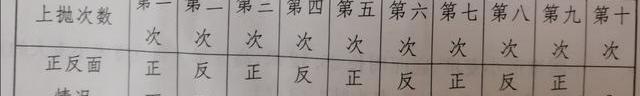 上抛次数 第一次 第二次 第三次 第四次 第五次 第六次 第七次 第八次 第九次 第十次
正反面情况 正 反 正 反 正 反 正 反 正